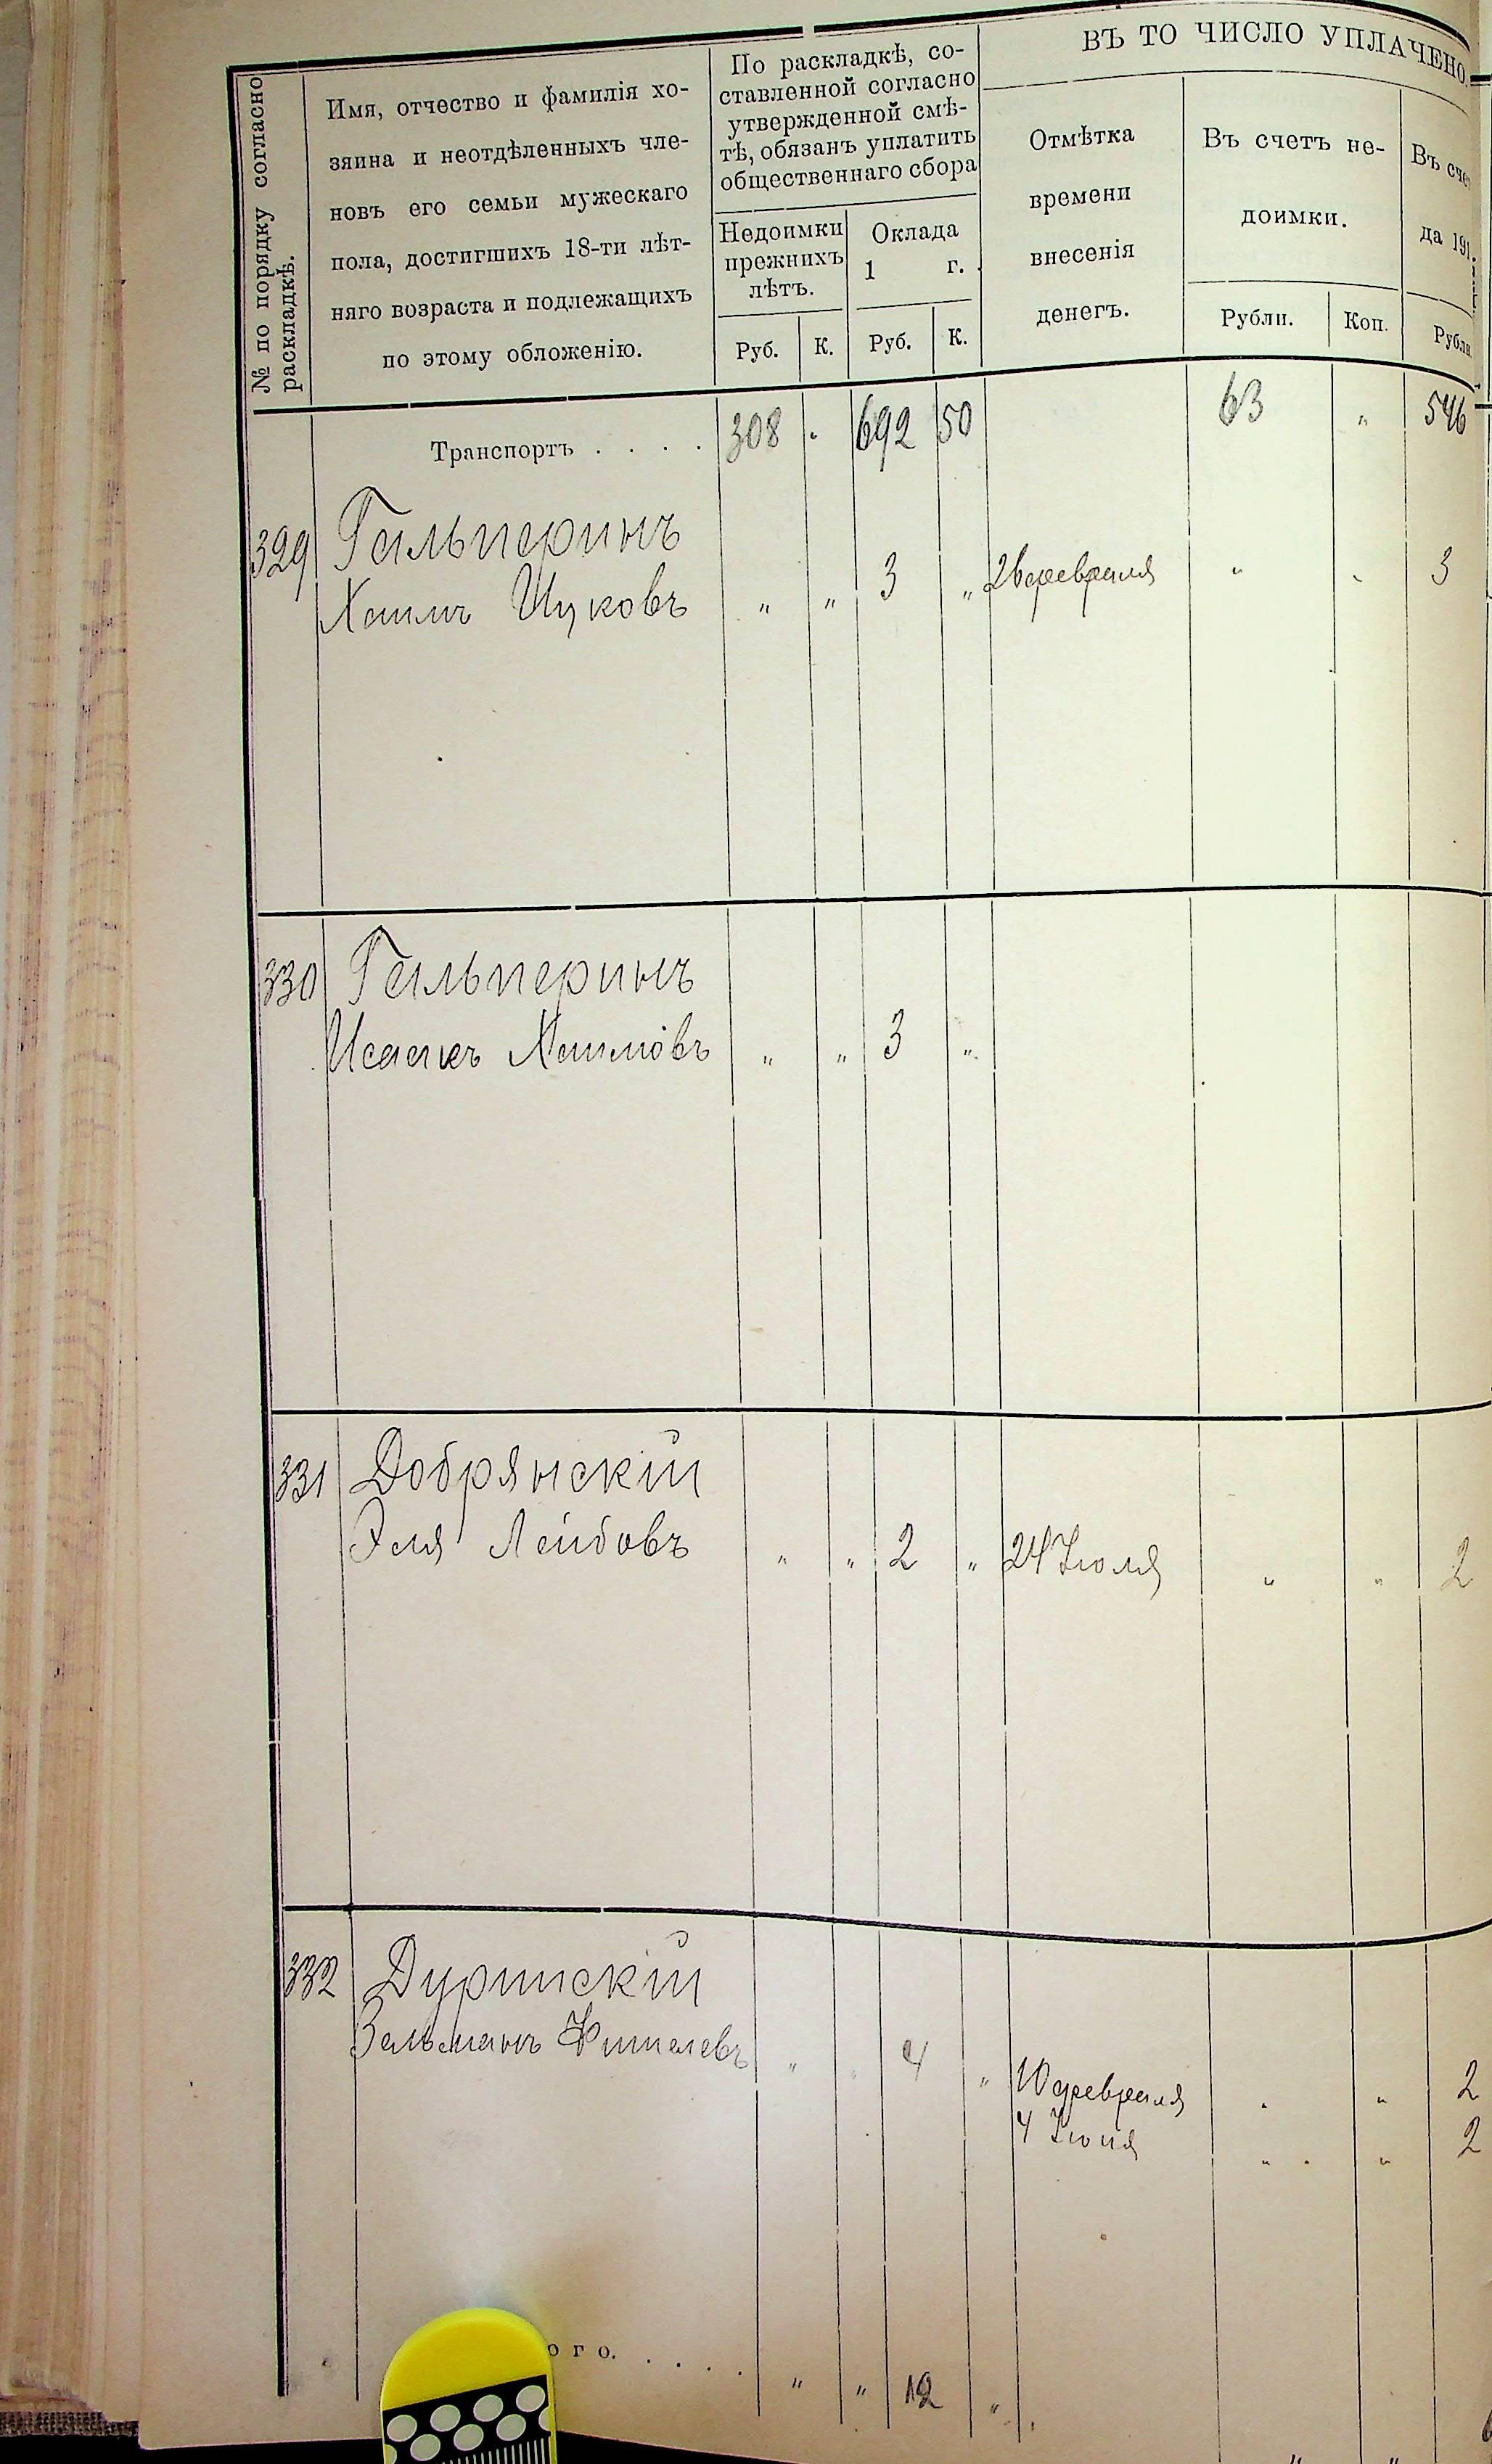 № по порядку согласно
раскладкѣ.
Имя, отчество и фамилія хо-
зяина и неотдѣленныхъ чле-
новъ его семьи мужескаго
пола, достигшихъ 18-ти лѣт-
няго возраста и подлежащихъ
по этому обложенію.
По раскладкѣ, со-
ставленной согласно
утвержденной смѣ-
тѣ, обязанъ уплатить
общественнаго сбора
Недоимки
прежнихъ
лѣтъ.
Оклада
1 г.
Руб. К. Руб. К.
ВЪ ТО ЧИСЛО УПЛАЧЕНО.
Отмѣтка
времени
внесенія
денегъ.
Въ счетъ не-
доимки.
Рубли. Коп.
Въ сче
да 191
Рубли
Транспортъ . . . . 308 " 692 50 63 " 546
329 Гальперинъ
Хаимъ Ицковъ " " 3 " февраля " " 3
330 Гальперинъ
Исаакъ Хаимовъ " " 3 "
331 Добрянскій
Эля Лейбовъ " " 2 " 24 Іюля " " 2
332 Дуринскій
Зельманъ Фишелевъ " " 4 " 10 февраля " " 2
4 Іюня " " 2
ого. . . . . " " 12 "